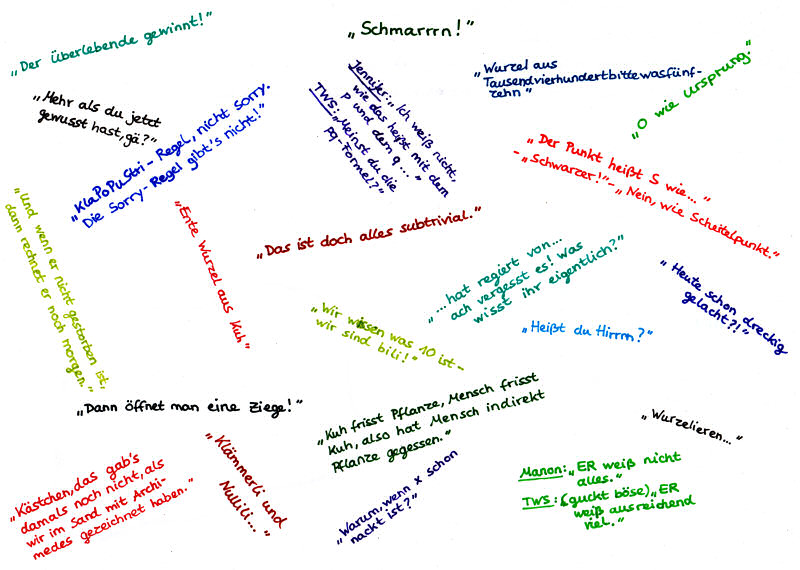 „Der Überlebende gewinnt!"
„Schmarrrn!"
„Wurzel aus
Tausendvierhundertbittewasfünf-
zehn"
„O wie Ursprung."
„Mehr als du jetzt
gewusst hast, gä?"
„KlaPoPuStri-Regel, nicht Sorry.
Die Sorry-Regel gibt's nicht!"
Jennifer: „Ich weiß nicht,
wie das heißt mit dem
P und dem q..."
TWS: „Meinst du die
pq-Formel!?"
„Der Punkt heißt S wie..."
-„Schwarzer!"-„Nein, wie Scheitelpunkt."
„Und wenn er nicht gestorben ist,
dann rechnet er noch morgen."
„Ente Wurzel aus Kuh"
„Das ist doch alles subtrivial."
„...hat regiert von...
ach vergesst es! Was
wisst ihr eigentlich?"
„Heute schon dreckig
gelacht?!"
„Wir wissen was 10 ist-
wir sind bili!"
„Heißt du Hirrrn?"
„Dann öffnet man eine Ziege!"
„Kuh frisst Pflanze, Mensch frisst
Kuh, also hat Mensch indirekt
Pflanze gegessen."
„Wurzelieren..."
„Kästchen, das gab's
damals noch nicht, als
wir im Sand mit Archi-
medes gezeichnet haben."
„Klämmerli und
Nullili..."
„Warum, wenn x schon
nackt ist?"
Manon: „ER weiß nicht
alles."
TWS: (guckt böse) „ER
weiß ausreichend
viel."